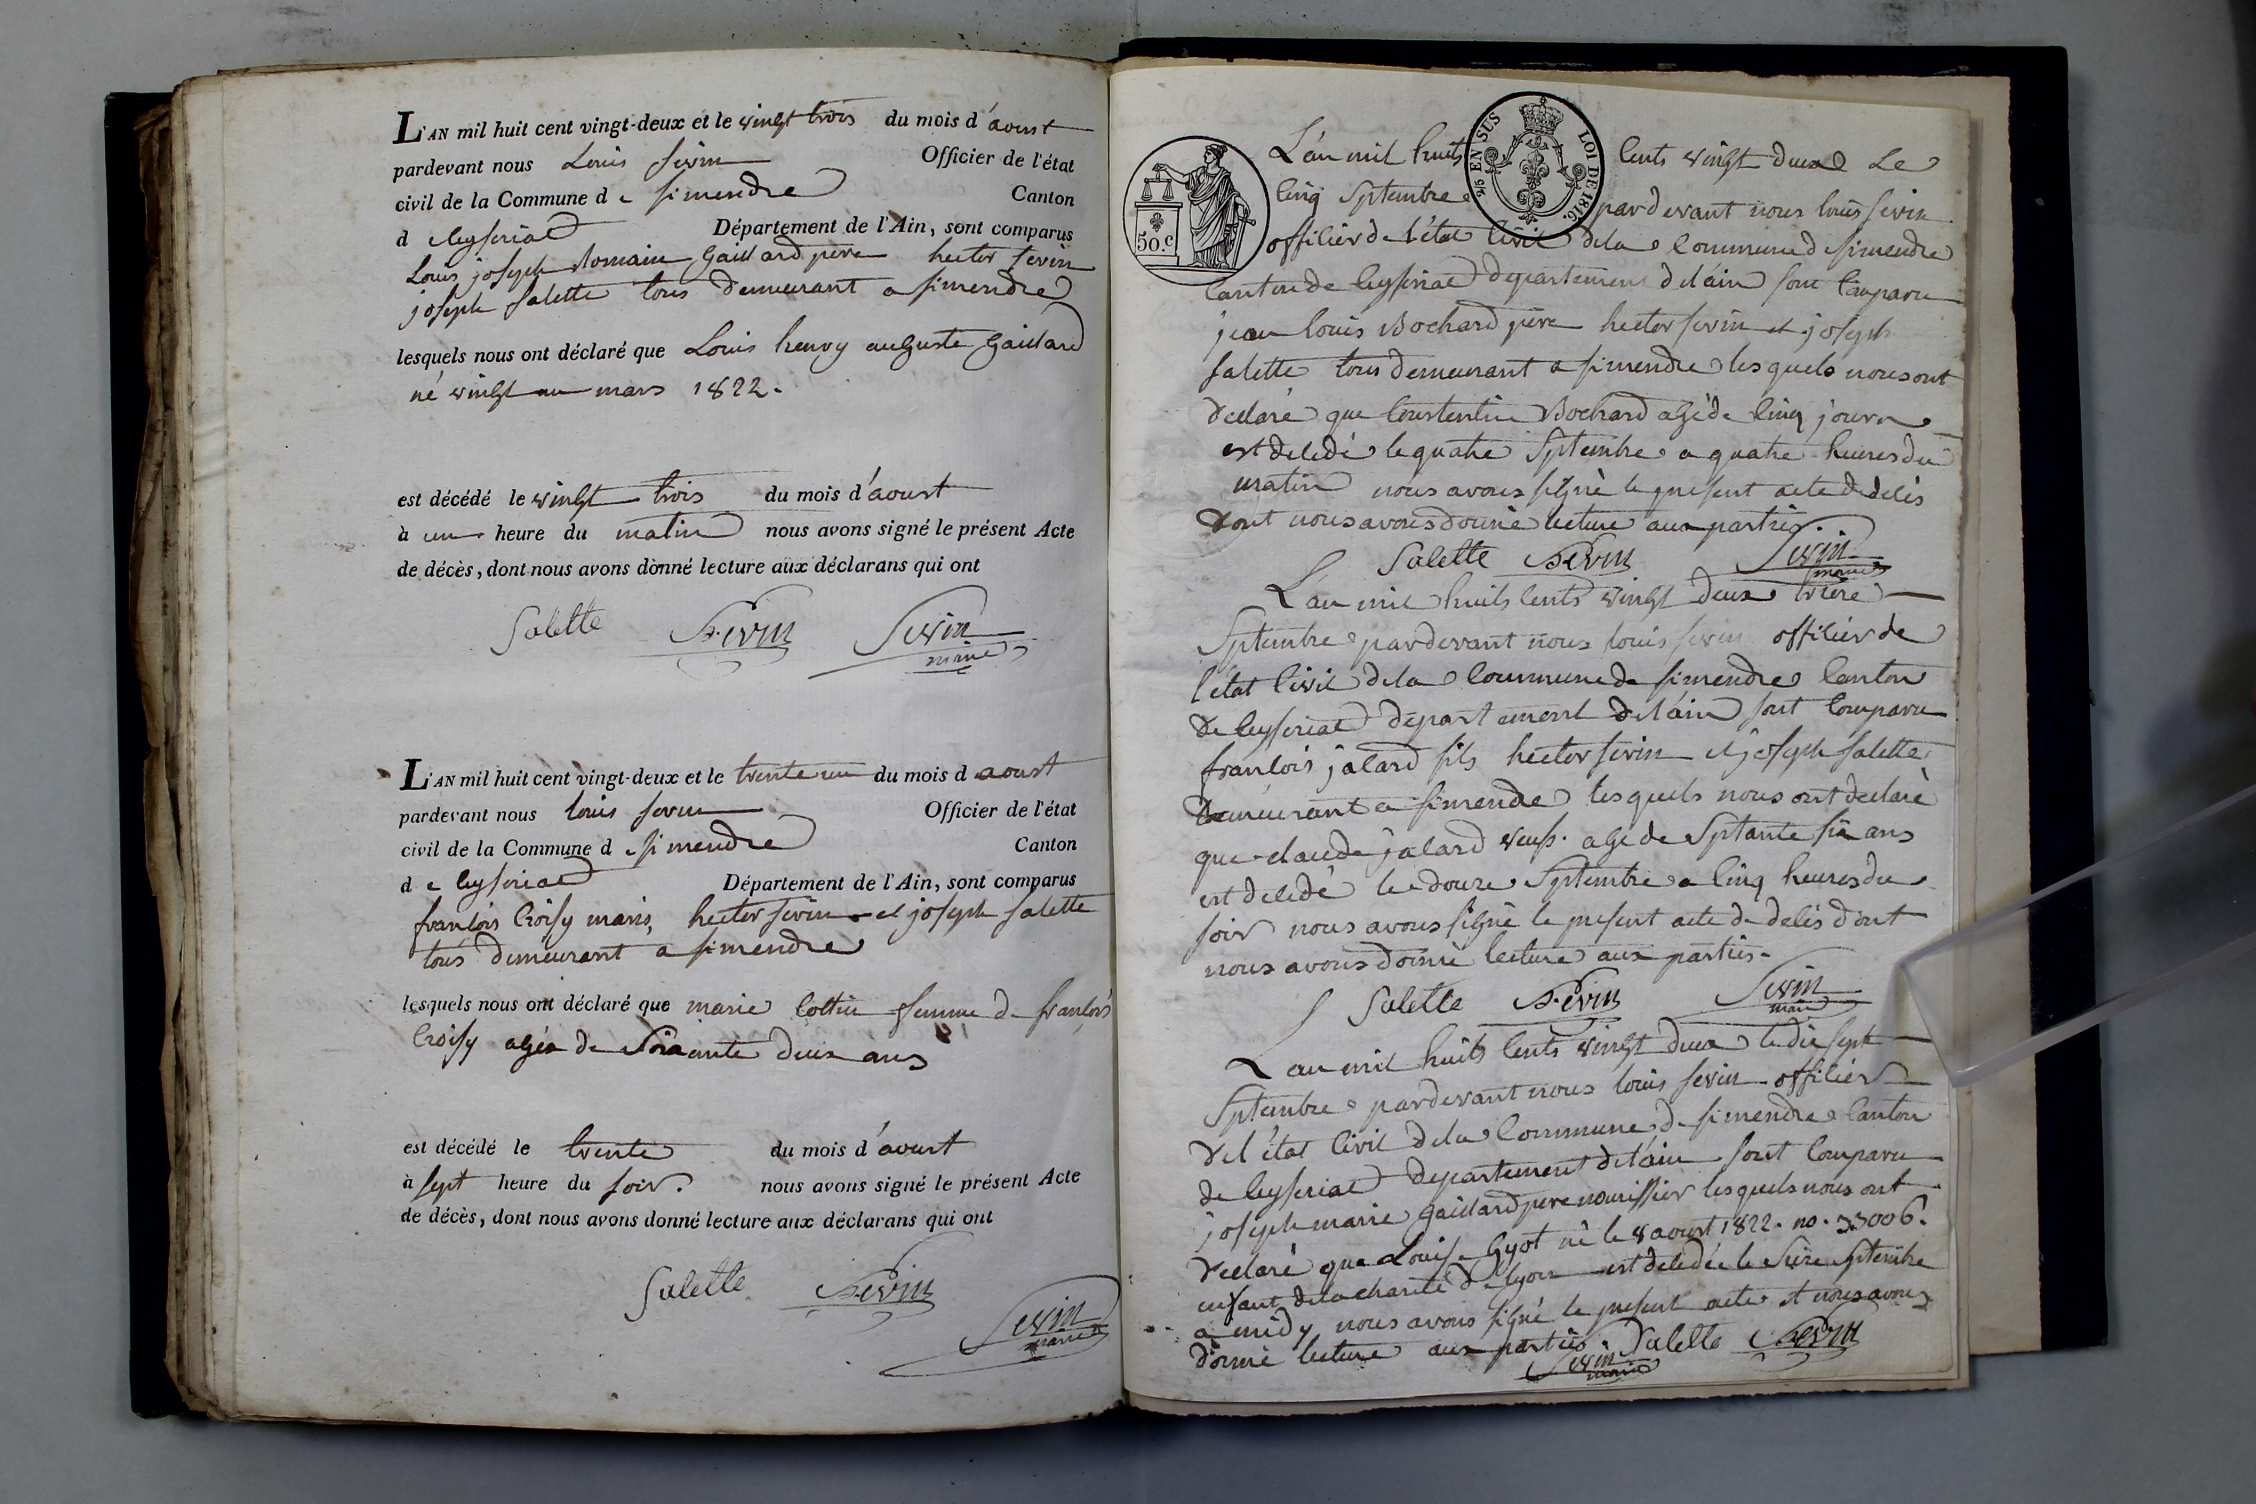 L'AN mil huit cent vingt-deux et le vingt trois du mois d'aoust
pardevant nous Louis sevin Officier de l'état
civil de la Commune de simendre Canton
d ceyseriat Département de l'Ain, sont comparus
Louis joseph Romain Gaillard père hector sevin
joseph salette tous demeurant a simendre
lesquels nous ont déclaré que Louis henry auguste Gaillard
né vingt un mars 1822.
est décédé le vingt trois du mois d'aoust
à un heure du matin nous avons signé le présent Acte
de décès, dont nous avons donné lecture aux déclarans qui ont
Salette h. Sevin Sevin
maire
L'AN mil huit cent vingt-deux et le trente un du mois d aoust
pardevant nous louis sevin Officier de l'état
civil de la Commune d simendre Canton
d e ceyseriat Département de l'Ain, sont comparus
françois Croisy maris, hector sevin et joseph salette
tous demeurant a simendre
lesquels nous ont déclaré que marie Cottin femme de françois
Croisy agéa de Soixante deux ans
est décédé le trente du mois d'aoust
à sept heure du soir. nous avons signé le présent Acte
de décès, dont nous avons donné lecture aux déclarans qui ont
Salette h. Sevin
Sevin
maire
EN SUS LOI DE 1816.
50.c
L'an mil huits cents vingt deux Le
cinq Septembre pardevant nous louis sevin
officier de l'état civil de la commune d simendre
canton de ceyseriat departement de l'ain sont comparu
jean louis Bochard père hector sevin et joseph
salette tous demeurant a simendre lesquels nous ont
declaré que Constentin Bochard agé de cinq jours
est decedé le quatre Septembre a quatre heures du
matin nous avons signé le present acte de décés
dont nous avons donné lecture aux parties.
Salette h. Sevin Sevin
maire
L'an mil huits cents vingt deux treize
Septembre pardevant nous louis sevin officier de
l'état civil de la commune de simendre canton
de ceyseriat departement de l'ain sont comparu
françois jalard fils hector sevin et joseph salette
demeurant a simendre lesquels nous ont declaré
que claude jalard veuf. agé de Septante six ans
est decedé le douze Septembre a cinq heures du
soir nous avons signé le present acte de decés dont
nous avons donné lecture aux parties.
Salette h. Sevin Sevin
maire
L'an mil huits cents vingt deux le dix sept
Septembre pardevant nous louis sevin officier
de l'état civil de la commune de simendre canton
de ceyseriat departement de l'ain sont comparu
joseph marie gaillard pere nourissier lesquels nous ont
declaré que Louise Gyot né le 8 aoust 1822. no. 33006.
enfant de la charité de lyon est decedée le Seize Septembre
a midy nous avons signé le present acte et nous avons
donné lecture aux parties. Salette h. Sevin
Sevin
maire